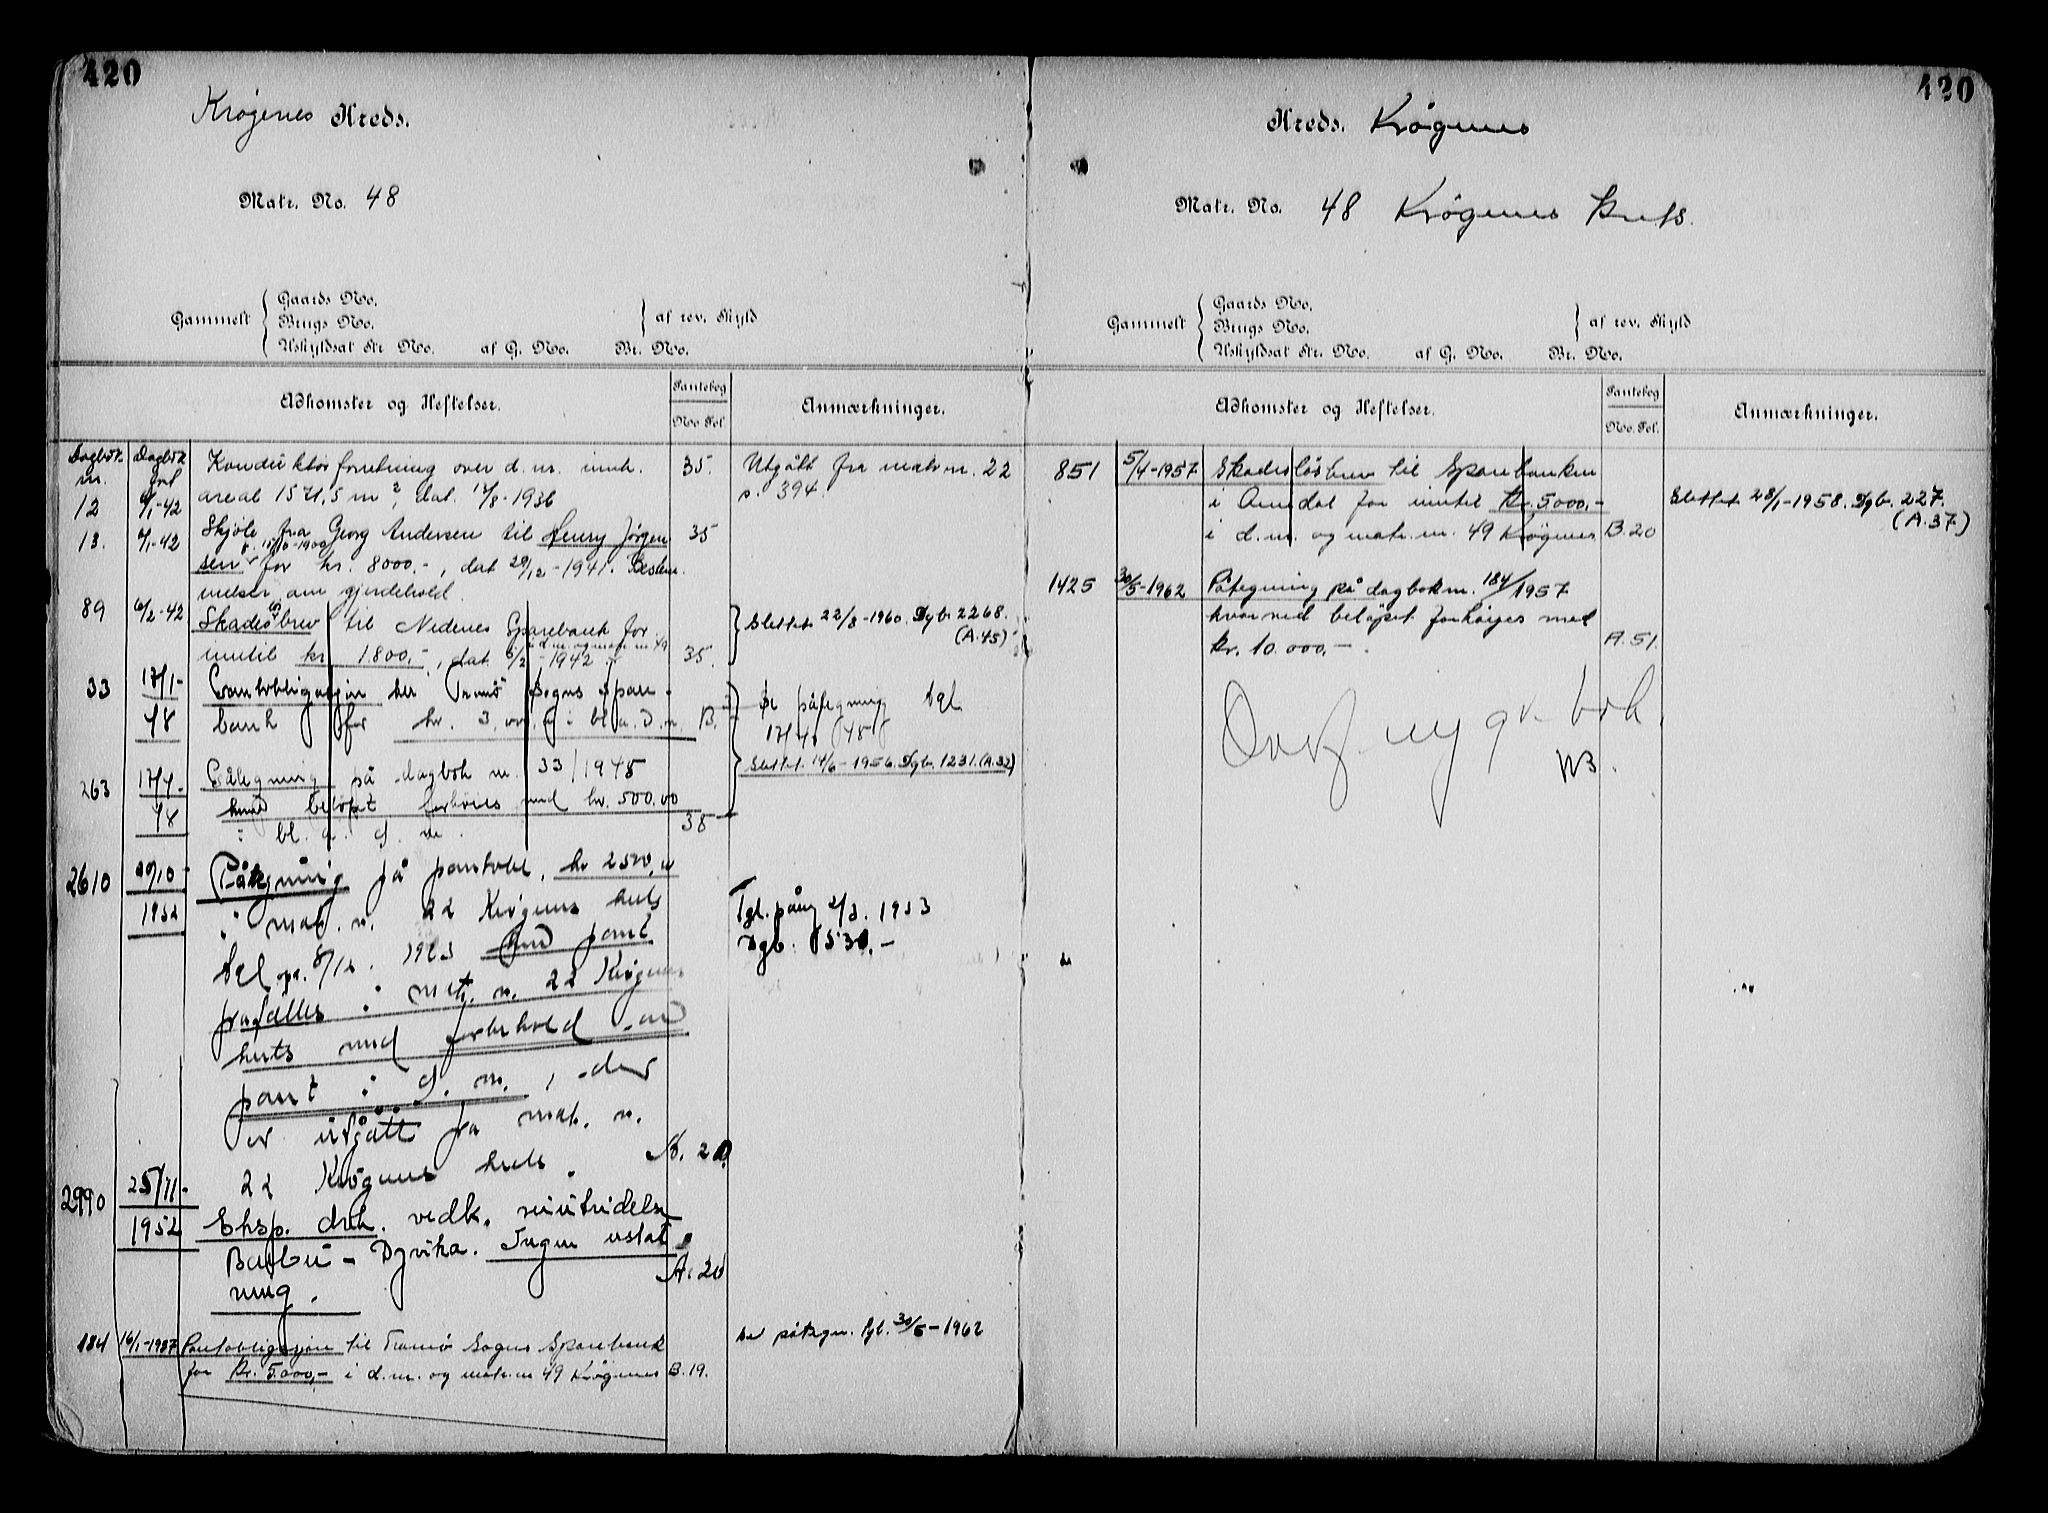 420
Krøgenes Kreds.
Matr. No. 48
Gammelt
Gaards No.
Brugs No.
Uskyldsat Str. No. af G. No. Br. No.
af rev. Skyld
Adkomster og Heftelser.
Pantebog
No. Fol.
Anmærkninger.
Dagbok nr.
Dagbok
12 6/1-42 Konduktørforretning over d. nr. innh. 35. Utgått fra matr.nr. 22
areal 1571,5 m², dat. 17/8-1936 s. 394.
13. 6/1-42 Skjöte fra Georg Andersen til Henry Jørgen 35
sen for kr. 8000.-, dat 29/12-1941. Bestem
melser om gjerdehold.
89 6/2-42 Skadesløsbrev til Nedenes Sparebank for Slettet 22/8-1960. Dgb. 2268.
(A.45)
inntil kr 1800.-, dat. 5/2-1942 35.
33 17/1-48 Pantobligasjon til Tromö Sogns Spare-
bank for kr. 3,000,00 i bl. a. d. n. B. Se påtegning tgl.
17/4 48
263 17/4-48 Påtegning på dagbok nr. 33/1948 Slettet 14/6-1956. Dgb. 1231. (A.32)
hvorved beløpet forhöies med kr. 500.00
i bl. a. d. nr. 38
2610 /10-1952 Påtegning på pantobl. kr 2500,00
i mat. n. 22 Krøgenes krets
tgl. 8/12. 1923 Tgl. påtg 2/3. 1953
Dgb. 530.-
frafalles i mat. n. 22 Krøgenes
krets med forbehold om
pant i d. nr., der
er utgått fra mat. n.
22 Krøgenes krets. A. 20.
2990 25/11-1952 Eksp. dok. vedk.
Barbu - Dyvika. Ingen erstat
ning. A. 20
184 16/1-1957 Pantobligasjon til Tromö Sogns Sparebank Se påtegn. tgl. 30/5-1962
for kr. 5.000,- i d.nr. og matr.nr 49 Krögenes B.19.
420
Kreds. Krögenes
Matr. No. 48 Krögenes krets.
Gammelt
Gaards No.
Brugs No.
Uskyldsat Str. No. af G. No. Br. No.
af rev. Skyld
Adkomster og Heftelser.
Pantebog
No. Fol.
Anmærkninger.
851 5/4-1957 Skadesløsbrev til Sparebanken
i Arendal for inntil kr. 5000,- Slettet 28/1-1958. Dgb. 227.
(A.37)
i d.nr. og matr.nr. 49 Krögenes B.20
1425 30/5-1962 Påtegning på dagboknr. 184/1957
hvorved beløpet forhøyes med
kr. 10.000,-. A.51.
Overf. ny gr. bok.